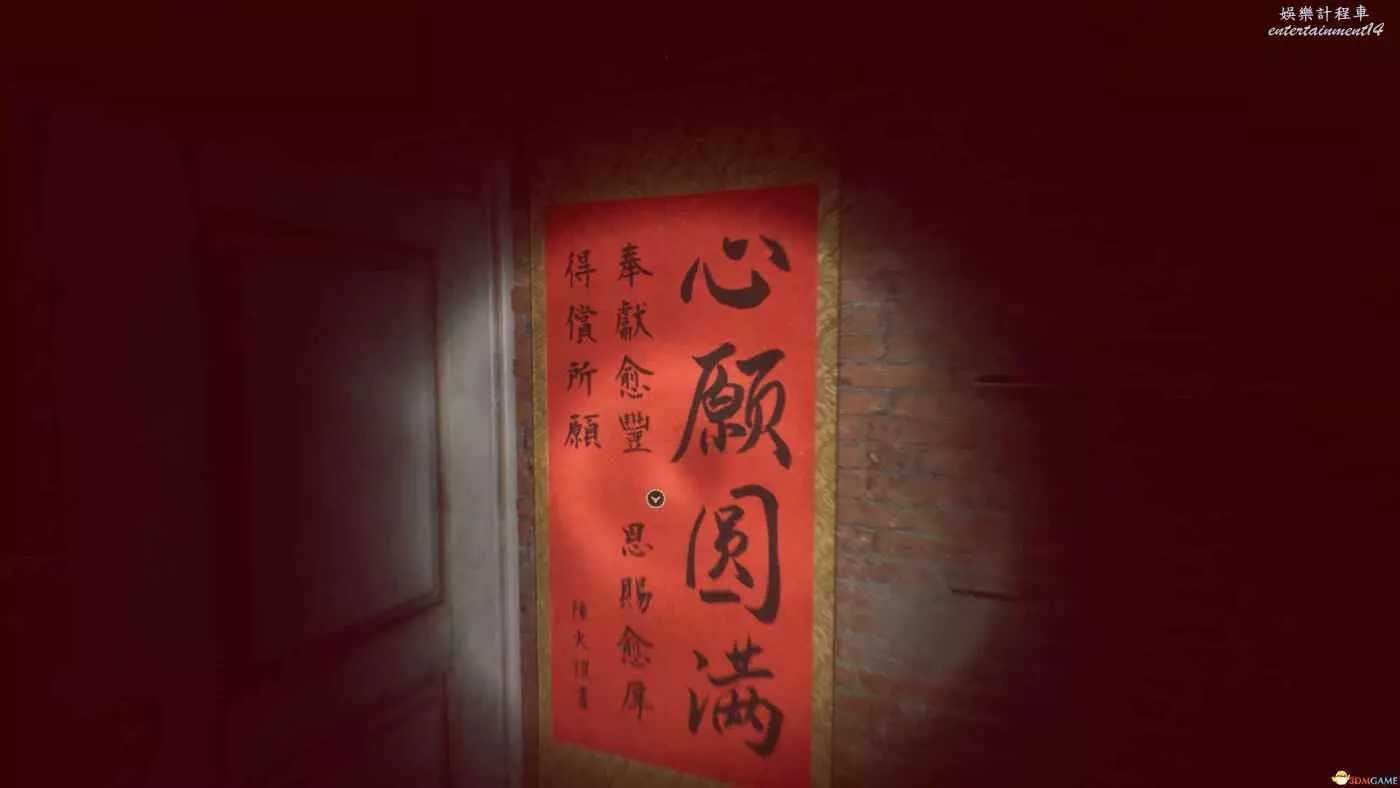 娛樂計程車
entertainment14
心願圆满
奉獻愈豐 恩賜愈厚
得償所願
火
書
3DMGAME